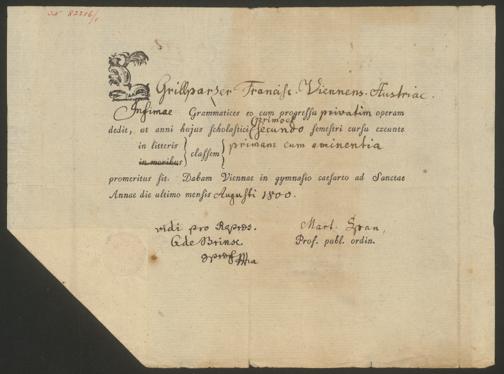 Grillparzer Francisc. Viennens. Austriac.
Infimae Grammatices eo cum progressu privatim operam
dedit, ut anni hujus scholastici secundo semestri cursu exeunte
in litteris
in moribus
classem
primam cum eminentia
promeritus sit. Dabam Viennae in gymnasio caesareo ad Sanctae
Annae die ultimo mensis Augusti 1800.
vidi pro
Mart. Span,
Prof. publ. ordin.